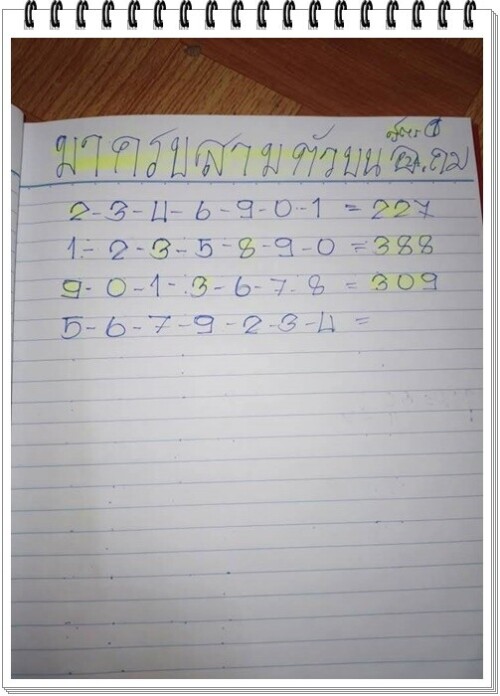 สูตร 1
มาครบสามตัวบน อ.ดม
2-3-4-6-9-0-1 = 227
1-2-3-5-8-9-0 = 388
9-0-1-3-6-7-8 = 309
5-6-7-9-2-3-4 =